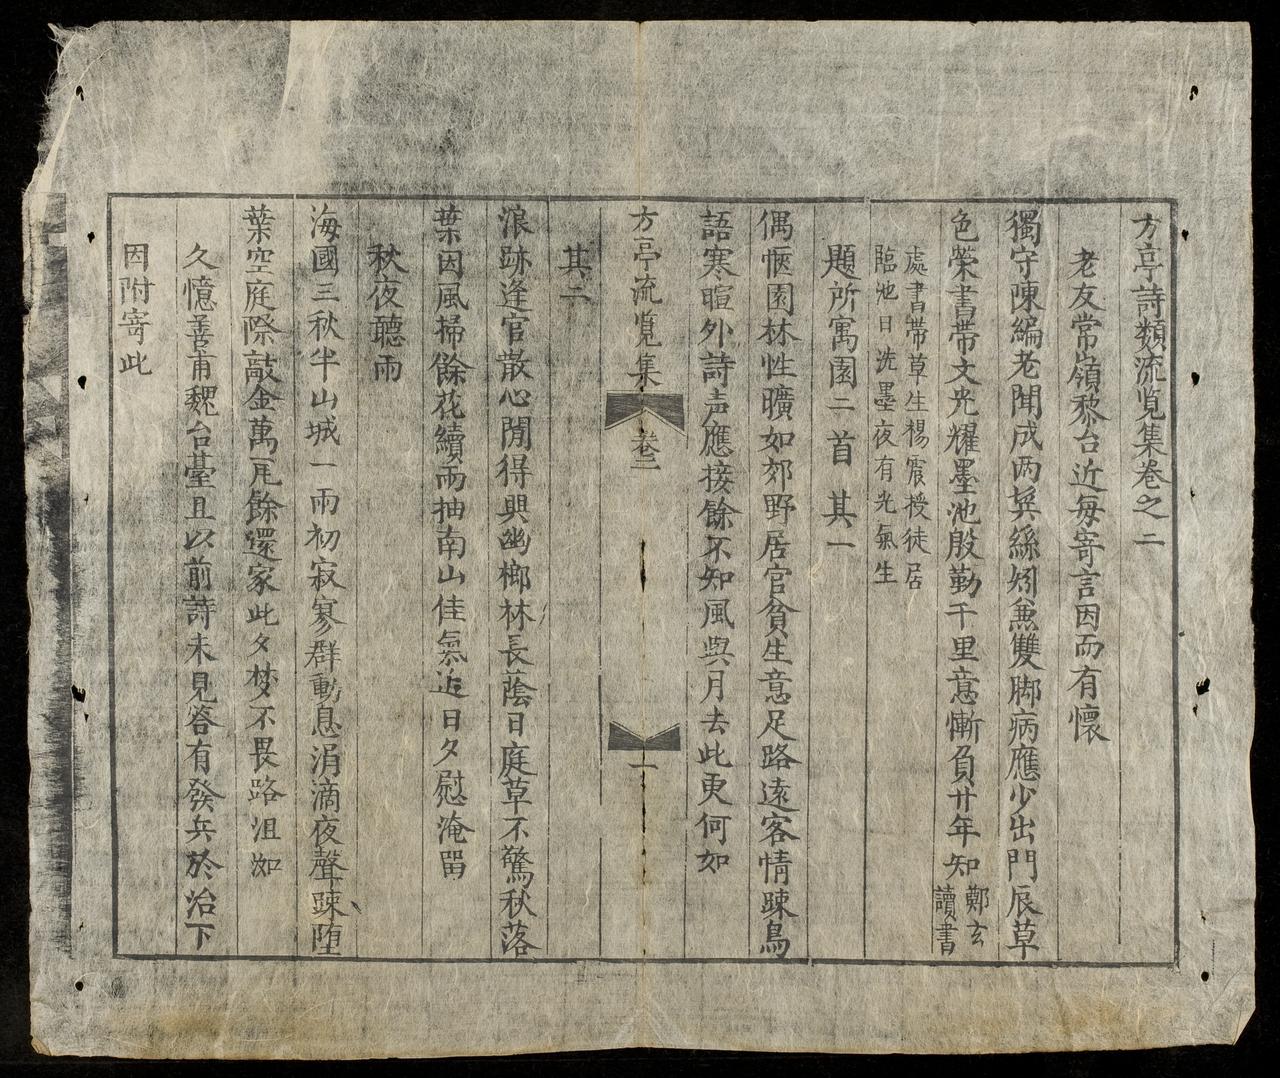 方亭詩類流覧集卷之二
老友常嶺黎台近每寄言因而有懷
獨守陳編老聞成两𩯭絲矧兼雙脚病應少出門辰草
色榮書帶文光耀墨池殷勤千里意慚負廿年知鄭玄讀書
處書帶草生楊震授徒居
臨池日洗墨夜有光氣生
題所寓園二首其一
偶愜園林性曠如郊野居官貧生意足路遠客情疎鳥
語寒暄外詩声應接餘不知風與月去此更何如
方亭流覧集 卷二 一
其二
浪跡逢官散心閒得興幽榔林長蔭日庭草不驚秋落
葉因風掃餘花續雨抽南山佳氣近日夕慰淹留
秋夜聽雨
海國三秋半山城一雨初寂寥群動息涓滴夜聲疎堕
葉空庭際敲金萬瓦餘還家此夕梦不畏路沮洳
久憶善甫魏台臺且以前詩未見答有發兵於治下
因附寄此